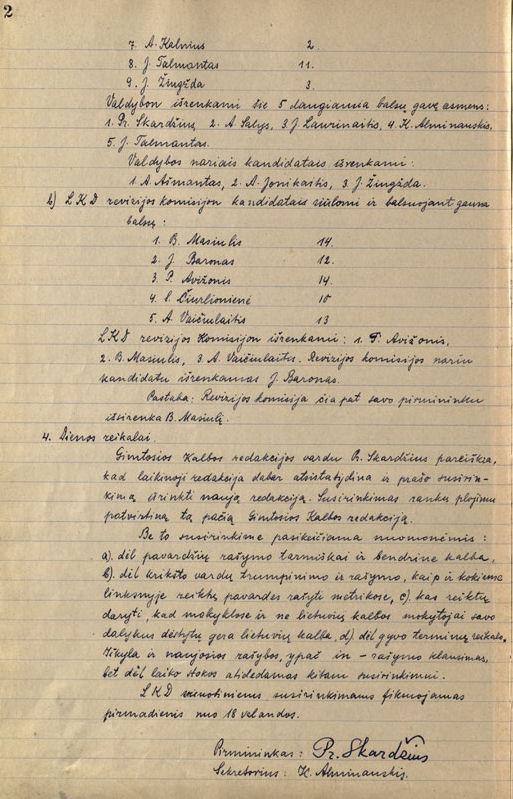 2
7. A. Kalnius 2.
8. J. Talmantas 11.
9. J. Žiugžda 3.
Valdybon išrenkami šie 5 daugiausia balsų gavę asmens:
1. Pr. Skardžius, 2. A. Salys, 3. J. Laurinaitis, 4. K. Alminauskis,
5. J. Talmantas.
Valdybos nariais kandidatais išrenkami:
1. A. Ašmantas, 2. A. Jonikaitis, 3. J. Žiugžda.
b) LKD revizijos komisijon kandidatais siūlomi ir balsuojant gauna
balsų:
1. B. Masiulis 14.
2. J. Baronas 12.
3. P. Avižonis 14.
4. S. Čiurlionienė 10
5. A. Vaičiulaitis 13
LKD revizijos Komisijon išrenkami: 1. P. Avižonis,
2. B. Masiulis, 3. A. Vaičiulaitis. Revizijos komisijos nariu
kandidatu išrenkamas J. Baronas.
Pastaba: Revizijos komisija čia pat savo pirmininku
išsirenka B. Masiulį.
4. Dienos reikalai.
Gimtosios Kalbos redakcijos vardu Pr. Skardžius pareiškia,
kad laikinoji redakcija dabar atsistatydina ir prašo susirin-
kimą išrinkti naują redakciją. Susirinkimas rankų plojimu
patvirtina tą pačią Gimtosios Kalbos redakciją.
Be to susirinkime pasikeičiama nuomonėmis:
a). dėl pavardžių rašymo tarmiškai ir bendrine kalba,
b). dėl krikšto vardų trumpinimo ir rašymo, kaip ir kokiame
linksnyje reiktų pavardes rašyti metrikose, c). kas reiktų
daryti, kad mokyklose ir ne lietuvių kalbos mokytojai savo
dalykus dėstytų gera lietuvių kalba, d) dėl gyvo terminų reikalo.
Iškyla ir naujosios rašybos, ypač in - rašymo klausimas,
bet dėl laiko stokos atidedamas kitam susirinkimui.
LKD vienotiniems susirinkimams fiksuojamas
pirmadienis nuo 18 valandos.
Pirmininkas: Pr. Skardžius
Sekretorius: K. Alminauskis.